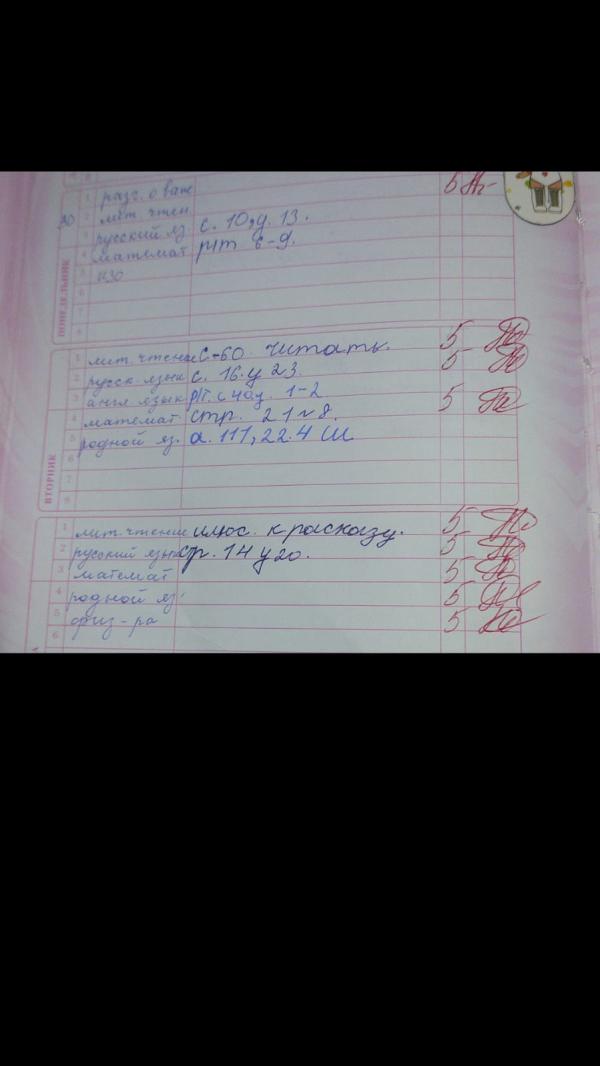 1 разг. о важ 5
30 2 лит. чтен
3 русский яз с. 10, у. 13.
4 математ р/т 8-9.
5 ИЗО
6
7
8
ПОНЕДЕЛЬНИК
1 лит. чтение с-60. читать. 5
2 русск. язык с. 16. у 23. 5
3 англ язык р/т. с 40 у. 1-2 5
4 математ стр. 21 №8.
5 родной яз.
6
7
8
ВТОРНИК
1 лит. чтение илюс. к расказу. 5
2 русский язык стр. 14 у 20. 5
3 математ 5
4 родной яз 5
5 физ-ра 5
6